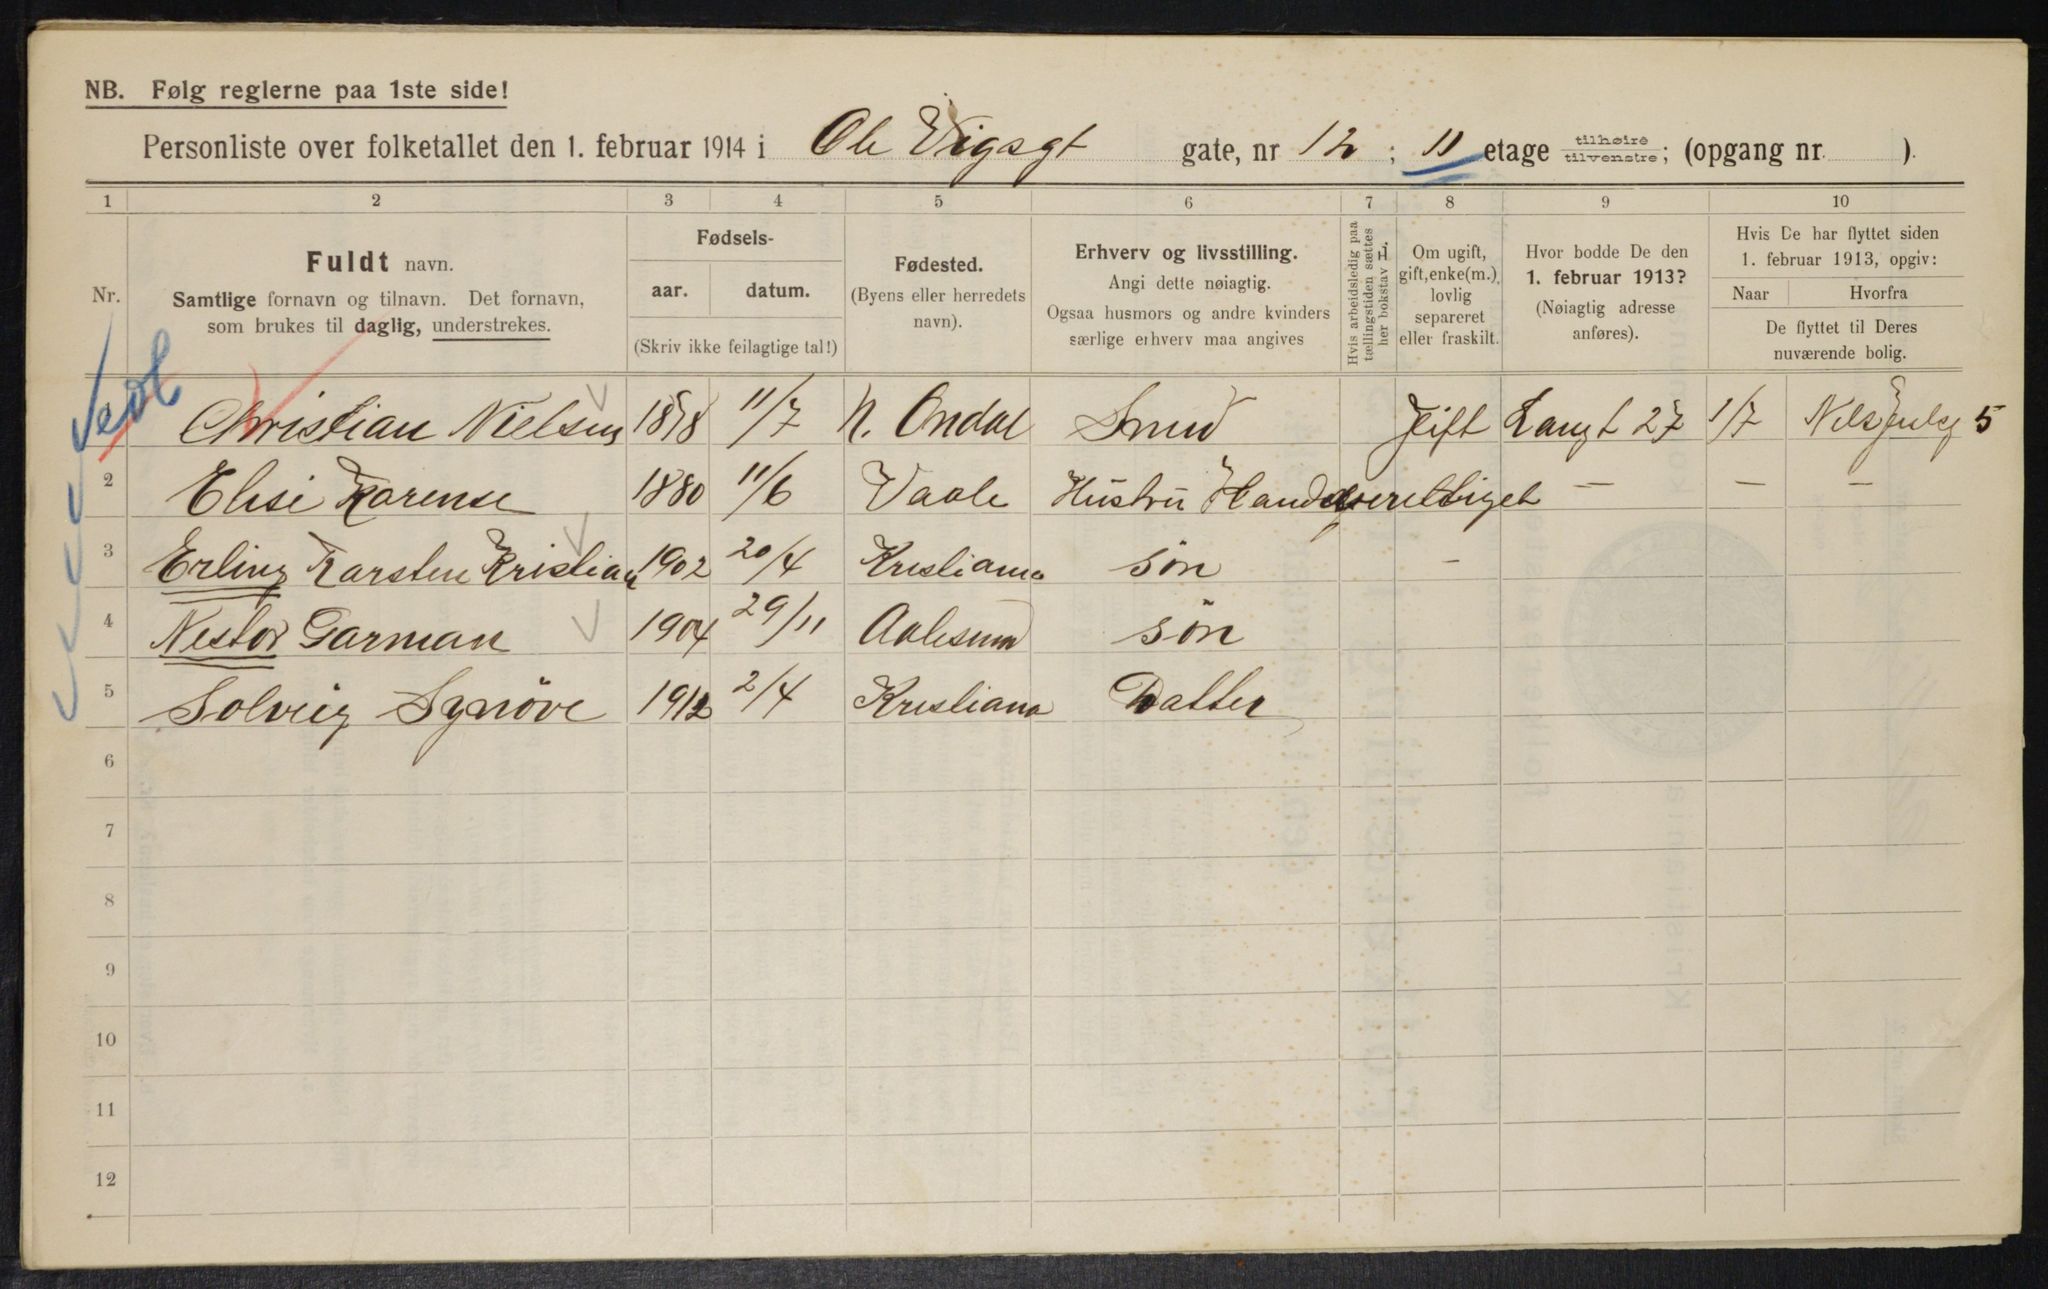 NB. Følg reglerne paa 1ste side!
Personliste over folketallet den 1. februar 1914 i Ole Vigsgt gate, nr 12; 11 etage tilhøire tilvenstre; (opgang nr. ).
1 2 3 4 5 6 7 8 9 10
Nr.
Fuldt navn.
Samtlige fornavn og tilnavn. Det fornavn,
som brukes til daglig, understrekes.
Fødsels-
aar. datum.
(Skriv ikke feilagtige tal!)
Fødested.
(Byens eller herredets
navn).
Erhverv og livsstilling.
Angi dette nøiagtig.
Ogsaa husmors og andre kvinders
særlige erhverv maa angives
Hvis arbeidsledig paa
tællingstiden sættes
her bokstav L.
Om ugift,
gift, enke(m.),
lovlig
separeret
eller fraskilt.
Hvor bodde De den
1. februar 1913?
(Nøiagtig adresse
anføres).
Hvis De har flyttet siden
1. februar 1913, opgiv:
Naar Hvorfra
De flyttet til Deres
nuværende bolig.
Christian Nielsen 1878 11/7 N. Ondal Smed Gift Langt 27 1/7 Nels Julsg 5
2 Elise Karense 1880 11/6 Vaale Hustru Handelsberettiget — — —
3 Erling Karsten Kristian 1902 20/4 Kristiania søn -
4 Nestor Garman 1904 29/11 Aalesund søn
5 Solveig Synöve 1912 2/4 Kristiana Datter
6
7
8
9
10
11
12